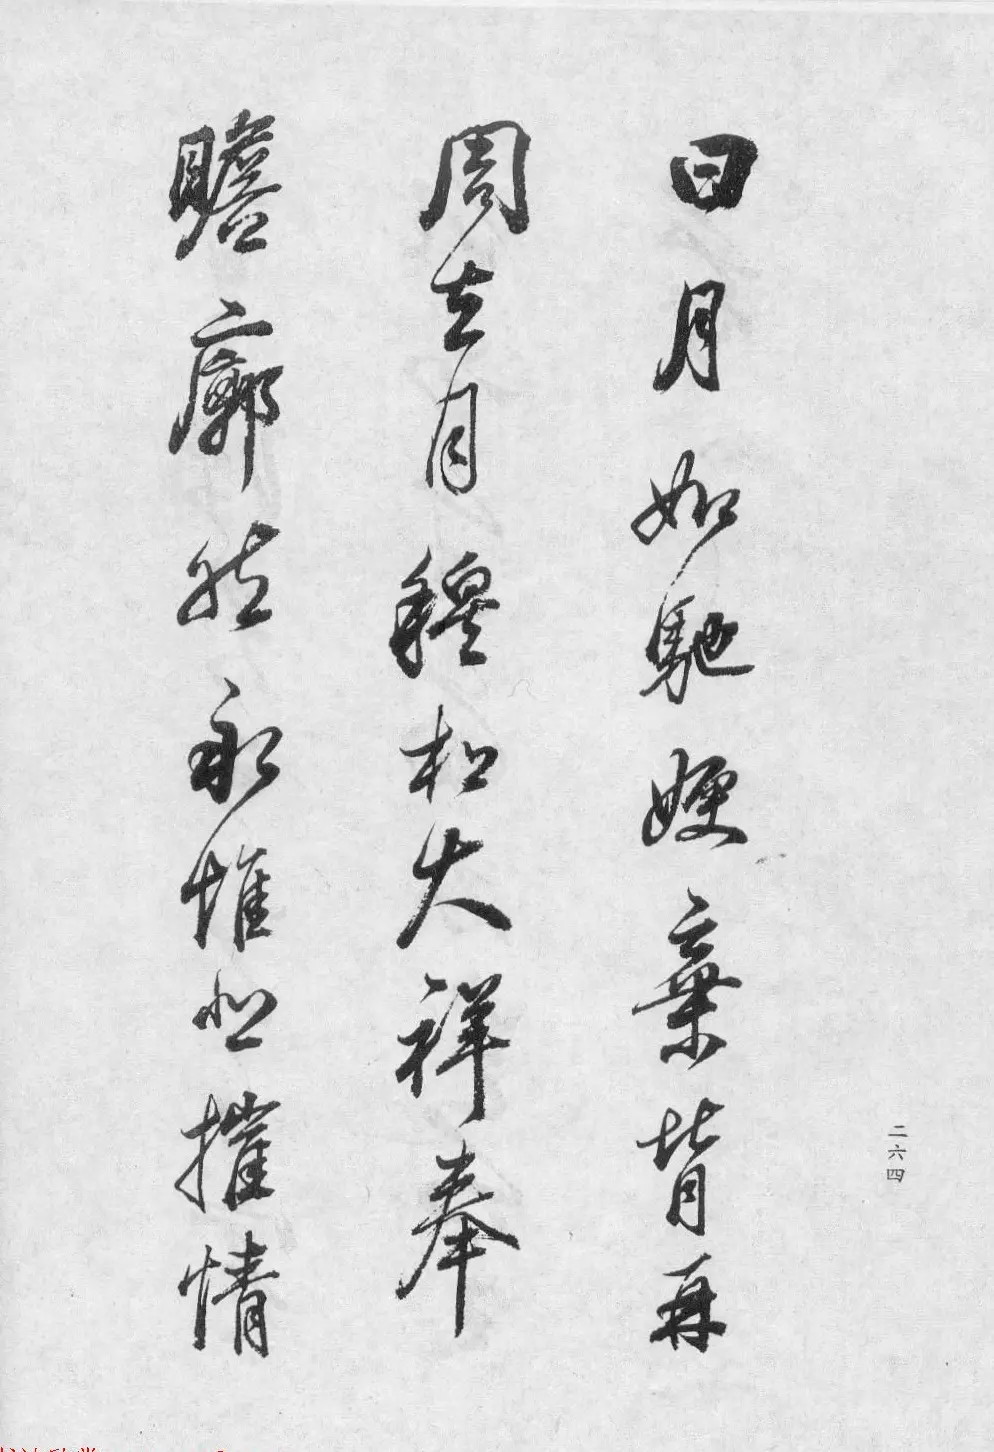 日月如馳嫂棄背再
周去月穆松大祥奉
瞻廓然永惟悲摧情
二六四